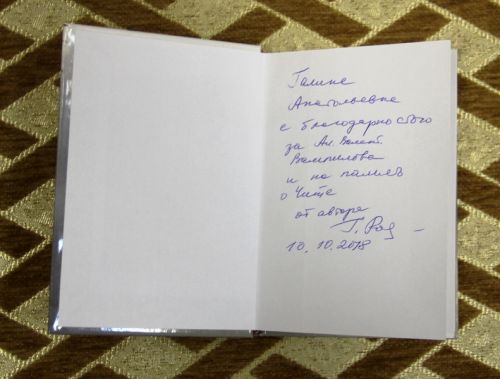 Галине
Анатольевне
с благодарностью
за Ал. Валент.
Вампилова
и на память
о Чите
от автора
10.10.2018